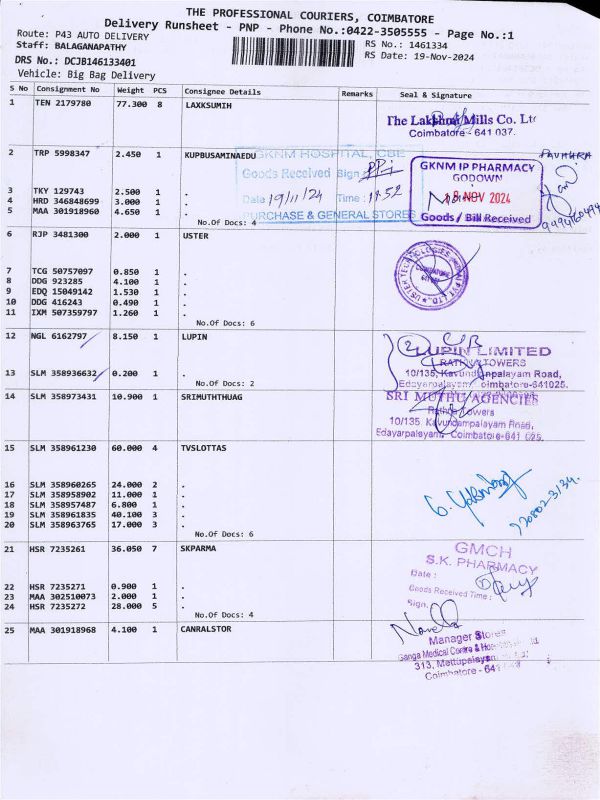 THE PROFESSIONAL COURIERS, COIMBATORE
Delivery Runsheet - PNP - Phone No.:0422-3505555 - Page No.:1
Route: P43 AUTO DELIVERY
Staff: BALAGANAPATHY
RS No.: 1461334
RS Date: 19-Nov-2024
DRS No.: DCJB146133401
Vehicle: Big Bag Delivery
S No Consignment No Weight PCS Consignee Details Remarks Seal & Signature
1 TEN 2179780 77.300 8 LAXKSUMIH
The Lakshmi Mills Co. Ltd
Coimbatore - 641 037.
2 TRP 5998347 2.450 1 KUPBUSAMINAEDU
GKNM HOSPITAL, CBE
Goods Received Sign
Date 19/11/24 Time : 11.52
PURCHASE & GENERAL STORES
GKNM IP PHARMACY
GODOWN
NOV 2024
Goods / Bill Received
PAVITHRA
3 TKY 129743 2.500 1 .
4 HRD 346848699 3.000 1 .
5 MAA 301918960 4.650 1 .
No.Of Docs: 4
6 RJP 3481300 2.000 1 USTER
7 TCG 50757097 0.850 1 .
8 DDG 923285 4.100 1 .
9 EDQ 15049142 1.530 1 .
10 DDG 416243 0.490 1 .
11 IXM 507359797 1.260 1 .
No.Of Docs: 6
12 NGL 6162797 8.150 1 LUPIN
LUPIN LIMITED
RATHNA TOWERS
10/135, Kavundampalayam Road,
Edayarpalayam, Coimbatore-641025.
13 SLM 358936632 0.200 1 .
No.Of Docs: 2
14 SLM 358973431 10.900 1 SRIMUTHTHUAG
SRI MUTHU AGENCIES
Rathna Towers
10/135, Kavundampalayam Road,
Edayarpalayam, Coimbatore-641 025.
15 SLM 358961230 60.000 4 TVSLOTTAS
16 SLM 358960265 24.000 2 .
17 SLM 358958902 11.000 1 .
18 SLM 358957487 6.800 1 .
19 SLM 358961835 40.100 3 .
20 SLM 358963765 17.000 3 .
No.Of Docs: 6
21 HSR 7235261 36.050 7 SKPARMA
GMCH
S.K. PHARMACY
Date :
Goods Received Time :
Sign.
22 HSR 7235271 0.900 1 .
23 MAA 302510073 2.000 1 .
24 HSR 7235272 28.000 5 .
No.Of Docs: 4
25 MAA 301918968 4.100 1 CANRALSTOR
Manager Stores
Ganga Medical Centre &
313, Mettupalayam
Coimbatore - 641